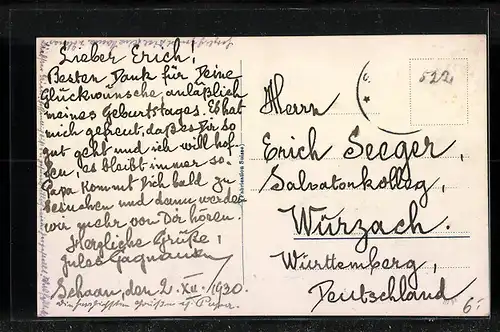 Lieber Erich!
Besten Dank für Deine
Glückwünsche anläßlich
meines Geburtstages. Es hat
mich gefreut, daß es Dir so
gut geht und ich will hof-
fen, es bleibt immer so.
Papa kommt Dich bald zu
besuchen und dann werden
wir mehr von Dir hören.
Herzliche Grüße!
Jules
Schaan, den 2. XII. 1930.
Die herzlichsten Grüßen
Fabrication Suisse
522
Herrn
Erich Seeger,
Salvatorkolleg,
Würzach.
Württemberg,
Deutschland
6.-